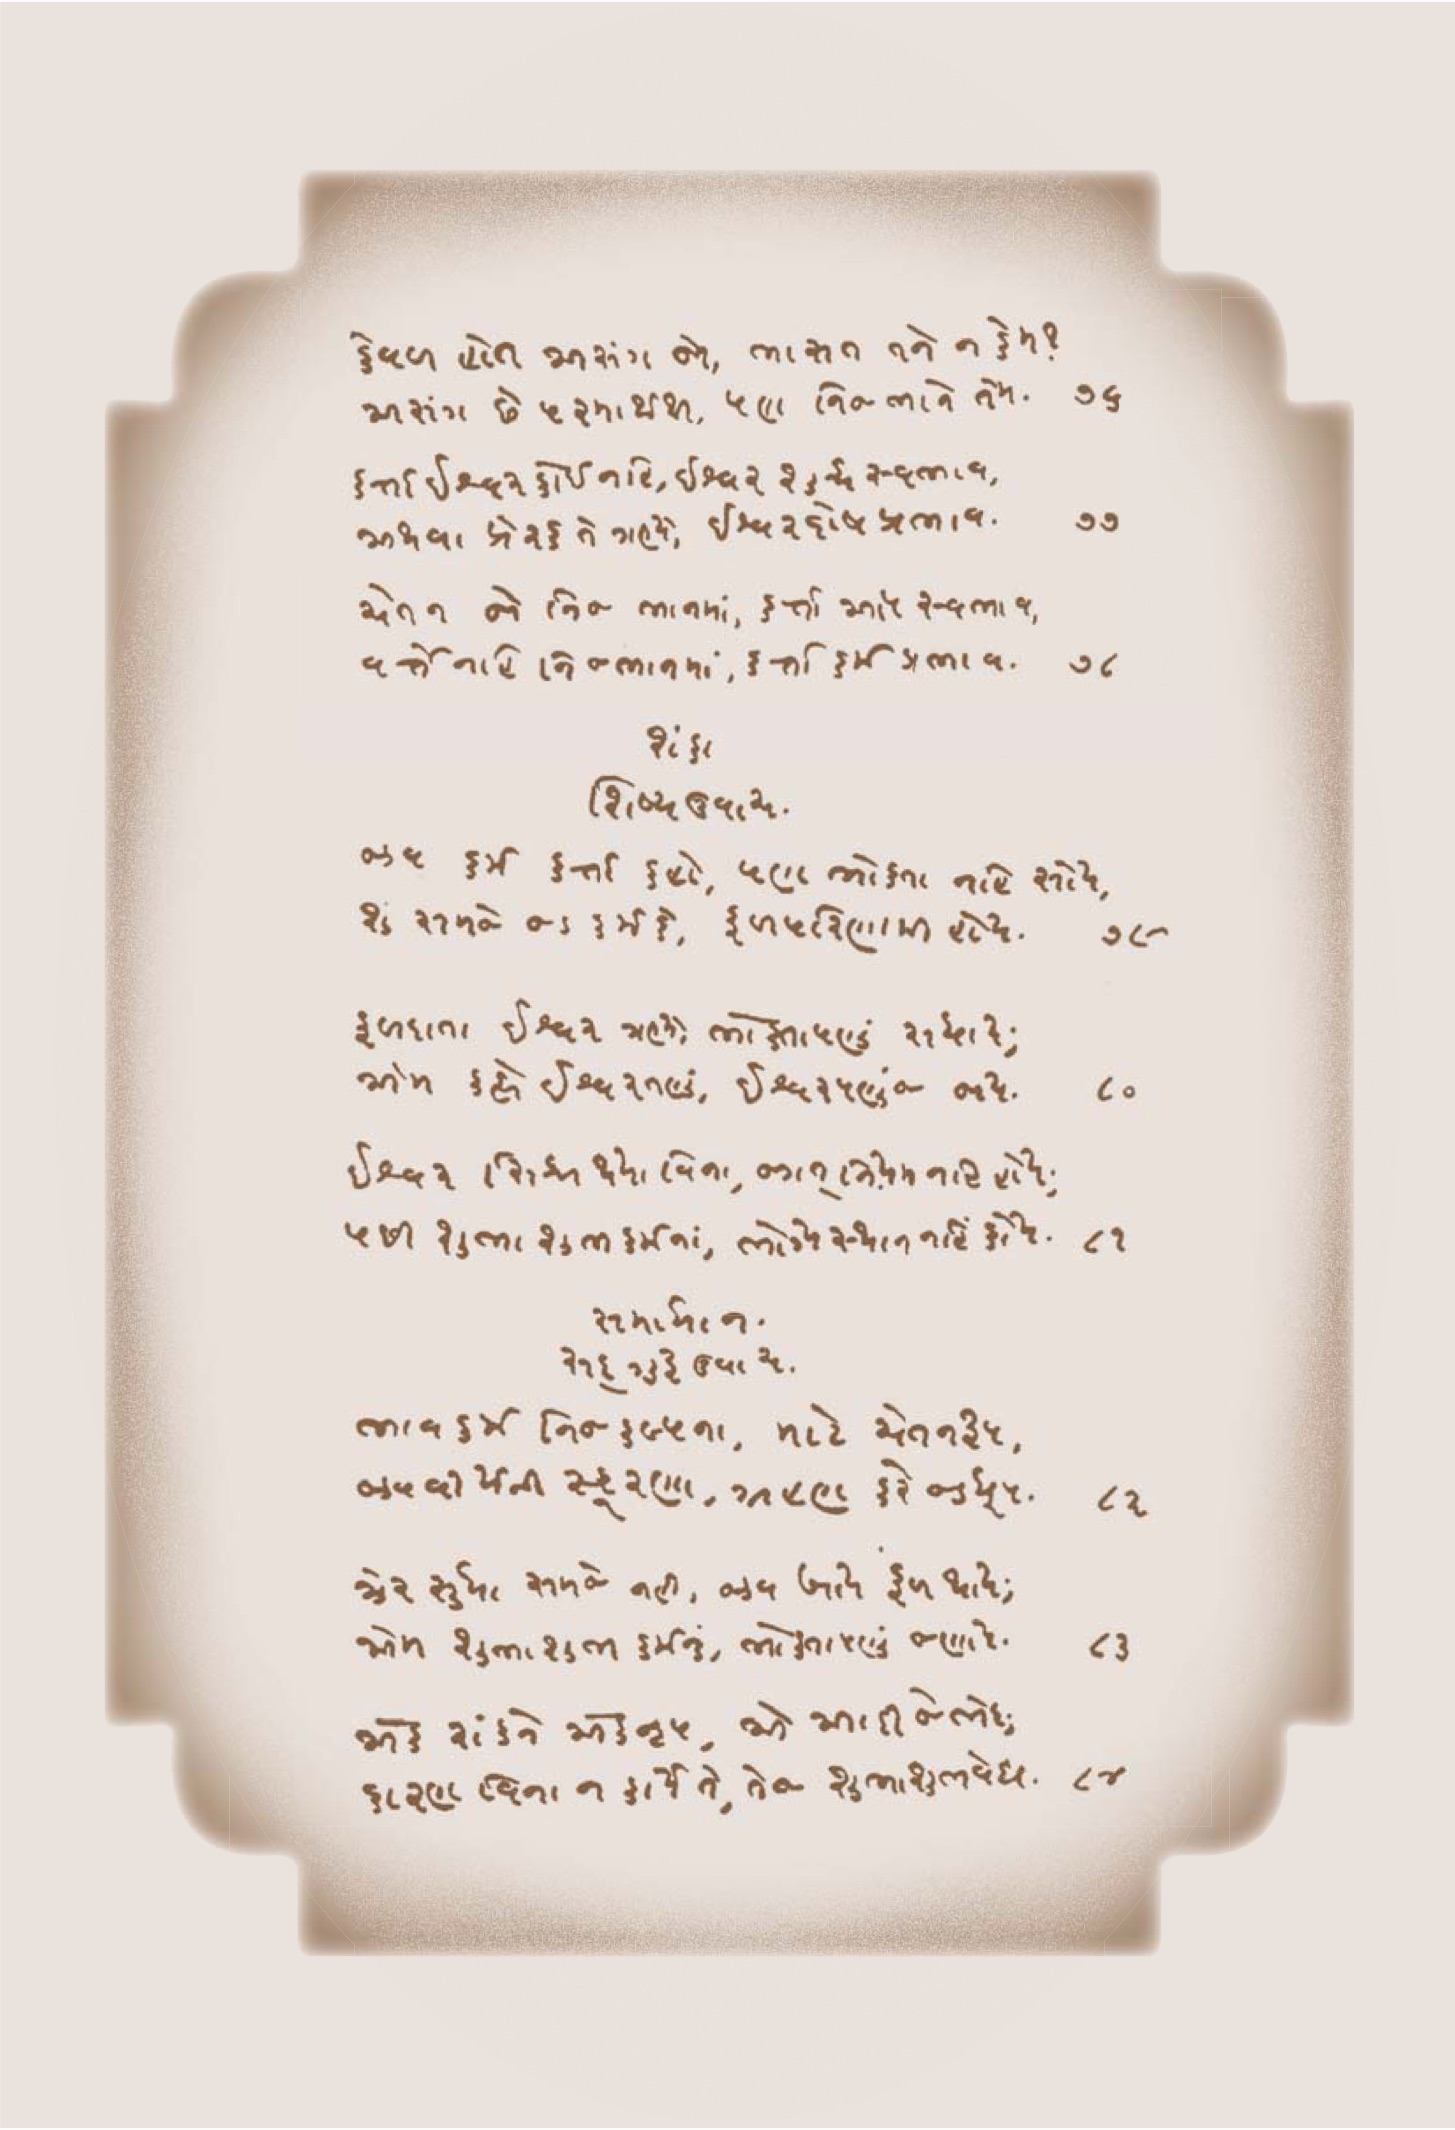 કેવળ હોત અસંગ જો, ભાસત તને ન કેમ?
અસંગ છે પરમાર્થથી, પણ નિજભાને તેમ. ૭૬
કર્ત્તા ઈશ્વર કોઈ નહિ, ઈશ્વર શુદ્ધ સ્વભાવ,
અથવા પ્રેરક તે ગણ્યે, ઈશ્વર દોષ પ્રભાવ. ૭૭
ચેતન જો નિજ ભાનમાં, કર્ત્તા આપ સ્વભાવ,
વર્ત્તે નહિ નિજ ભાનમાં, કર્ત્તા કર્મ પ્રભાવ. ૭૮
શંકા
શિષ્ય ઉવાચ.
જીવ કર્મ કર્ત્તા કહો, પણ ભોક્તા નહિ સોય,
શું સમજે જડ કર્મ કે, ફળ પરિણામી હોય. ૭૯
ફળદાતા ઈશ્વર ગણ્યે, ભોક્તાપણું સધાય;
એમ કહ્યે ઈશ્વરતણું, ઈશ્વરપણુંજ જાય. ૮૦
ઈશ્વર સિદ્ધ થયા વિના, જગત્ નિયમ નહિ હોય;
પછી શુભાશુભ કર્મનાં, ભોગ્ય સ્થાન નહિં કોય. ૮૧
સમાધાન.
સદ્ગુરુ ઉવાચ.
ભાવકર્મ નિજ કલ્પના, માટે ચેતનરૂપ,
જીવવીર્યની સ્ફૂરણા, ગ્રહણ કરે જડધૂપ. ૮૨
ઝેર સુધા સમજે નહી, જીવ ખાય ફળ થાય;
એમ શુભાશુભ કર્મનું, ભોક્તાપણું જણાય. ૮૩
એક રાંકને એક નૃપ, એ આદી જે ભેદ;
કારણ વિના ન કાર્ય તે, તેજ શુભાશુભ વેદ્ય. ૮૪